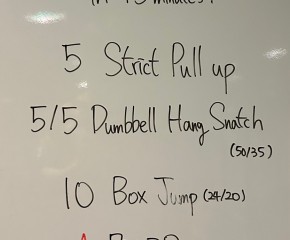 in 15 minutes!
5 Strict Pull up
5/5 Dumbbell Hang Snatch
(50/35)
10 Box Jump (24/20)